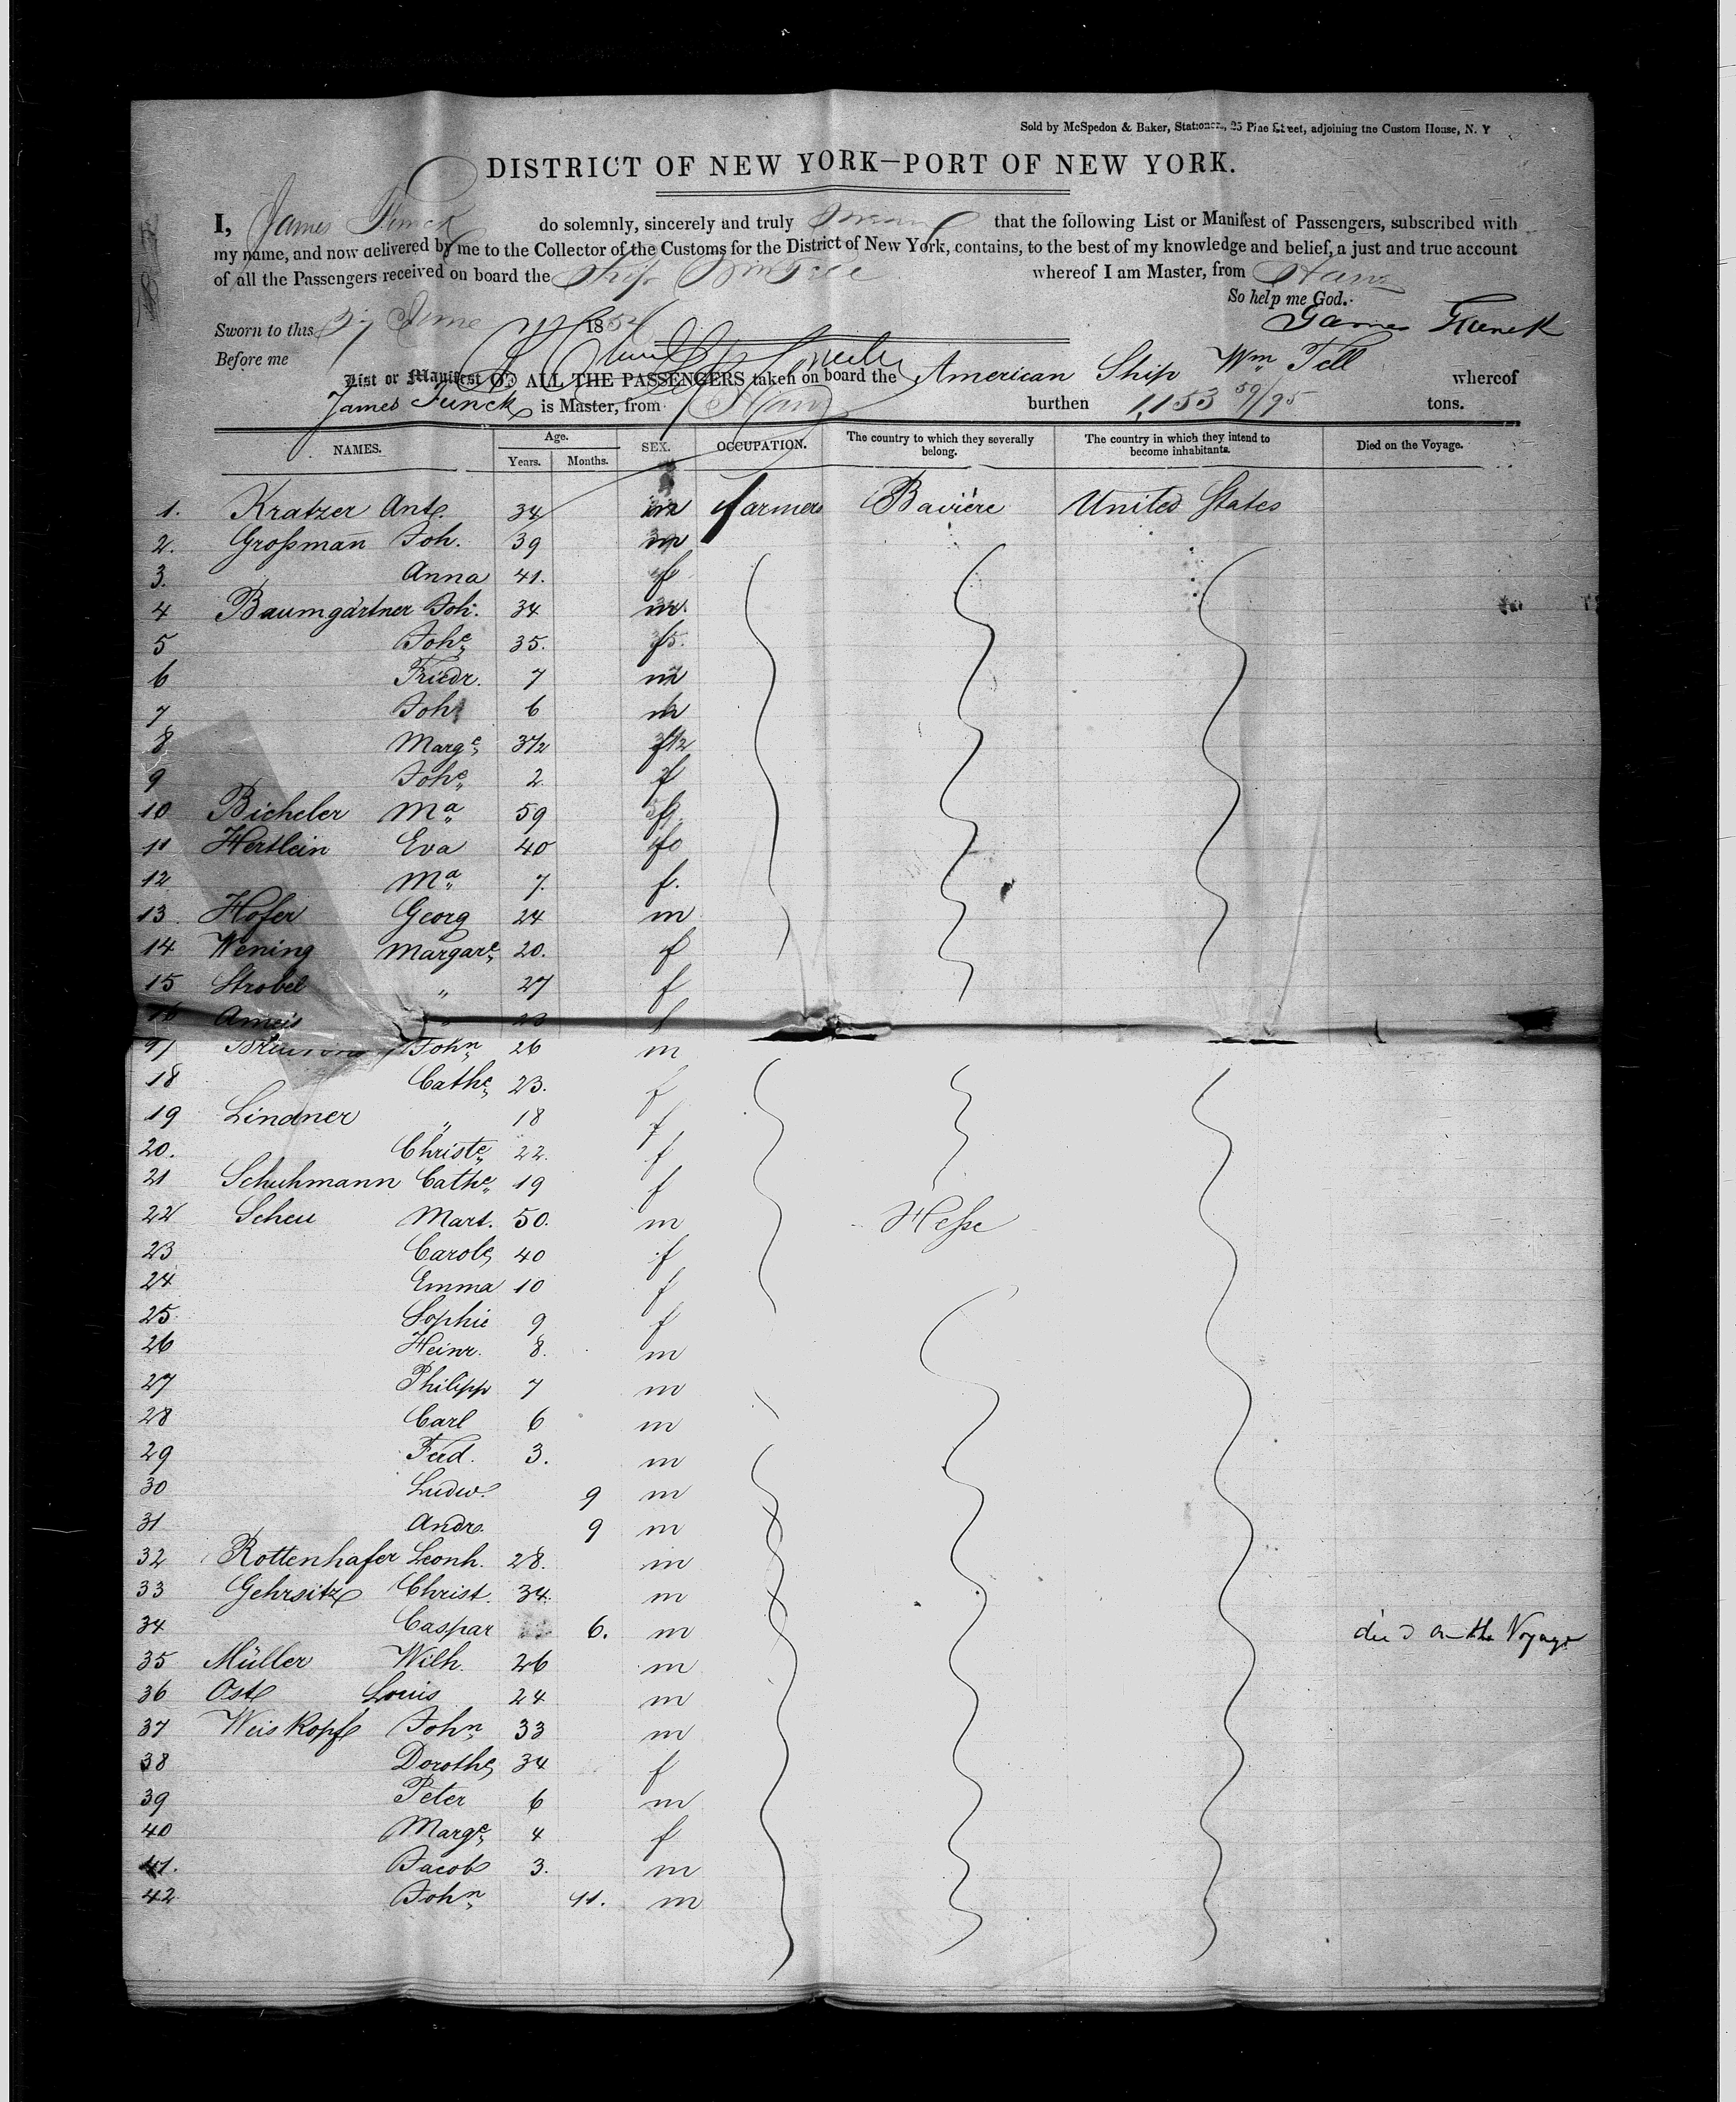 Sold by McSpedon & Baker, Stationers, 25 Pine Street, adjoining the Custom House, N. Y
DISTRICT OF NEW YORK—PORT OF NEW YORK.
I, James Funck do solemnly, sincerely and truly swear that the following List or Manifest of Passengers, subscribed with
my name, and now delivered by me to the Collector of the Customs for the District of New York, contains, to the best of my knowledge and belief, a just and true account
of all the Passengers received on board the Ship Wm Tell whereof I am Master, from Havre
So help me God.
Sworn to this June 1854 James Funck
Before me
List or Manifest OF ALL THE PASSENGERS taken on board the American Ship Wm Tell whereof
James Funck is Master, from Havre burthen 1,153 59/95 tons.
NAMES. Age. Years. Months. SEX. OCCUPATION. The country to which they severally belong. The country in which they intend to become inhabitants. Died on the Voyage.
1. Kratzer Ante. 34 m farmer Bavière United States
2. Großman Joh. 39 m
3. Anna 41. f
4 Baumgärtner Joh. 34 m.
5 Johe 35. f
6 Friedr. 7 m
7 Joh 6 m
8 Marge 3 1/2 f
9 Johe 2 f
10 Bicheler Ma 59 f
11 Hertlein Eva 40 f
12 Ma 7. f.
13. Hofer Georg 24 m
14 Wening Margare 20. f
15 Strobel " 27 f
16 Ameis " f
17 John 26 m
18 Cathe 23. f
19 Lindner " 18 f
20. Christe 22. f
21 Schuhmann Cathe 19 f
22 Scheu Mart. 50. m Hesse
23 Carole 40 f
24 Emma 10 f
25. Sophie 9 f
26 Heinr. 8. m
27 Philipp 7 m
28 Carl 6 m
29 Ferd. 3. m
30 Ludw. 9 m
31 Andr. 9 m
32 Rottenhafer Leonh. 28. m
33 Gehrsitz Christ. 34. m
34 Caspar 6. m died on the Voyage
35 Müller Wilh. 26 m
36 Ost Louis 24 m
37 Weiskopf John 33 m
38 Dorothe 34 f
39 Peter 6 m
40 Marge 4 f
41. Jacob 3. m
42 John 11. m